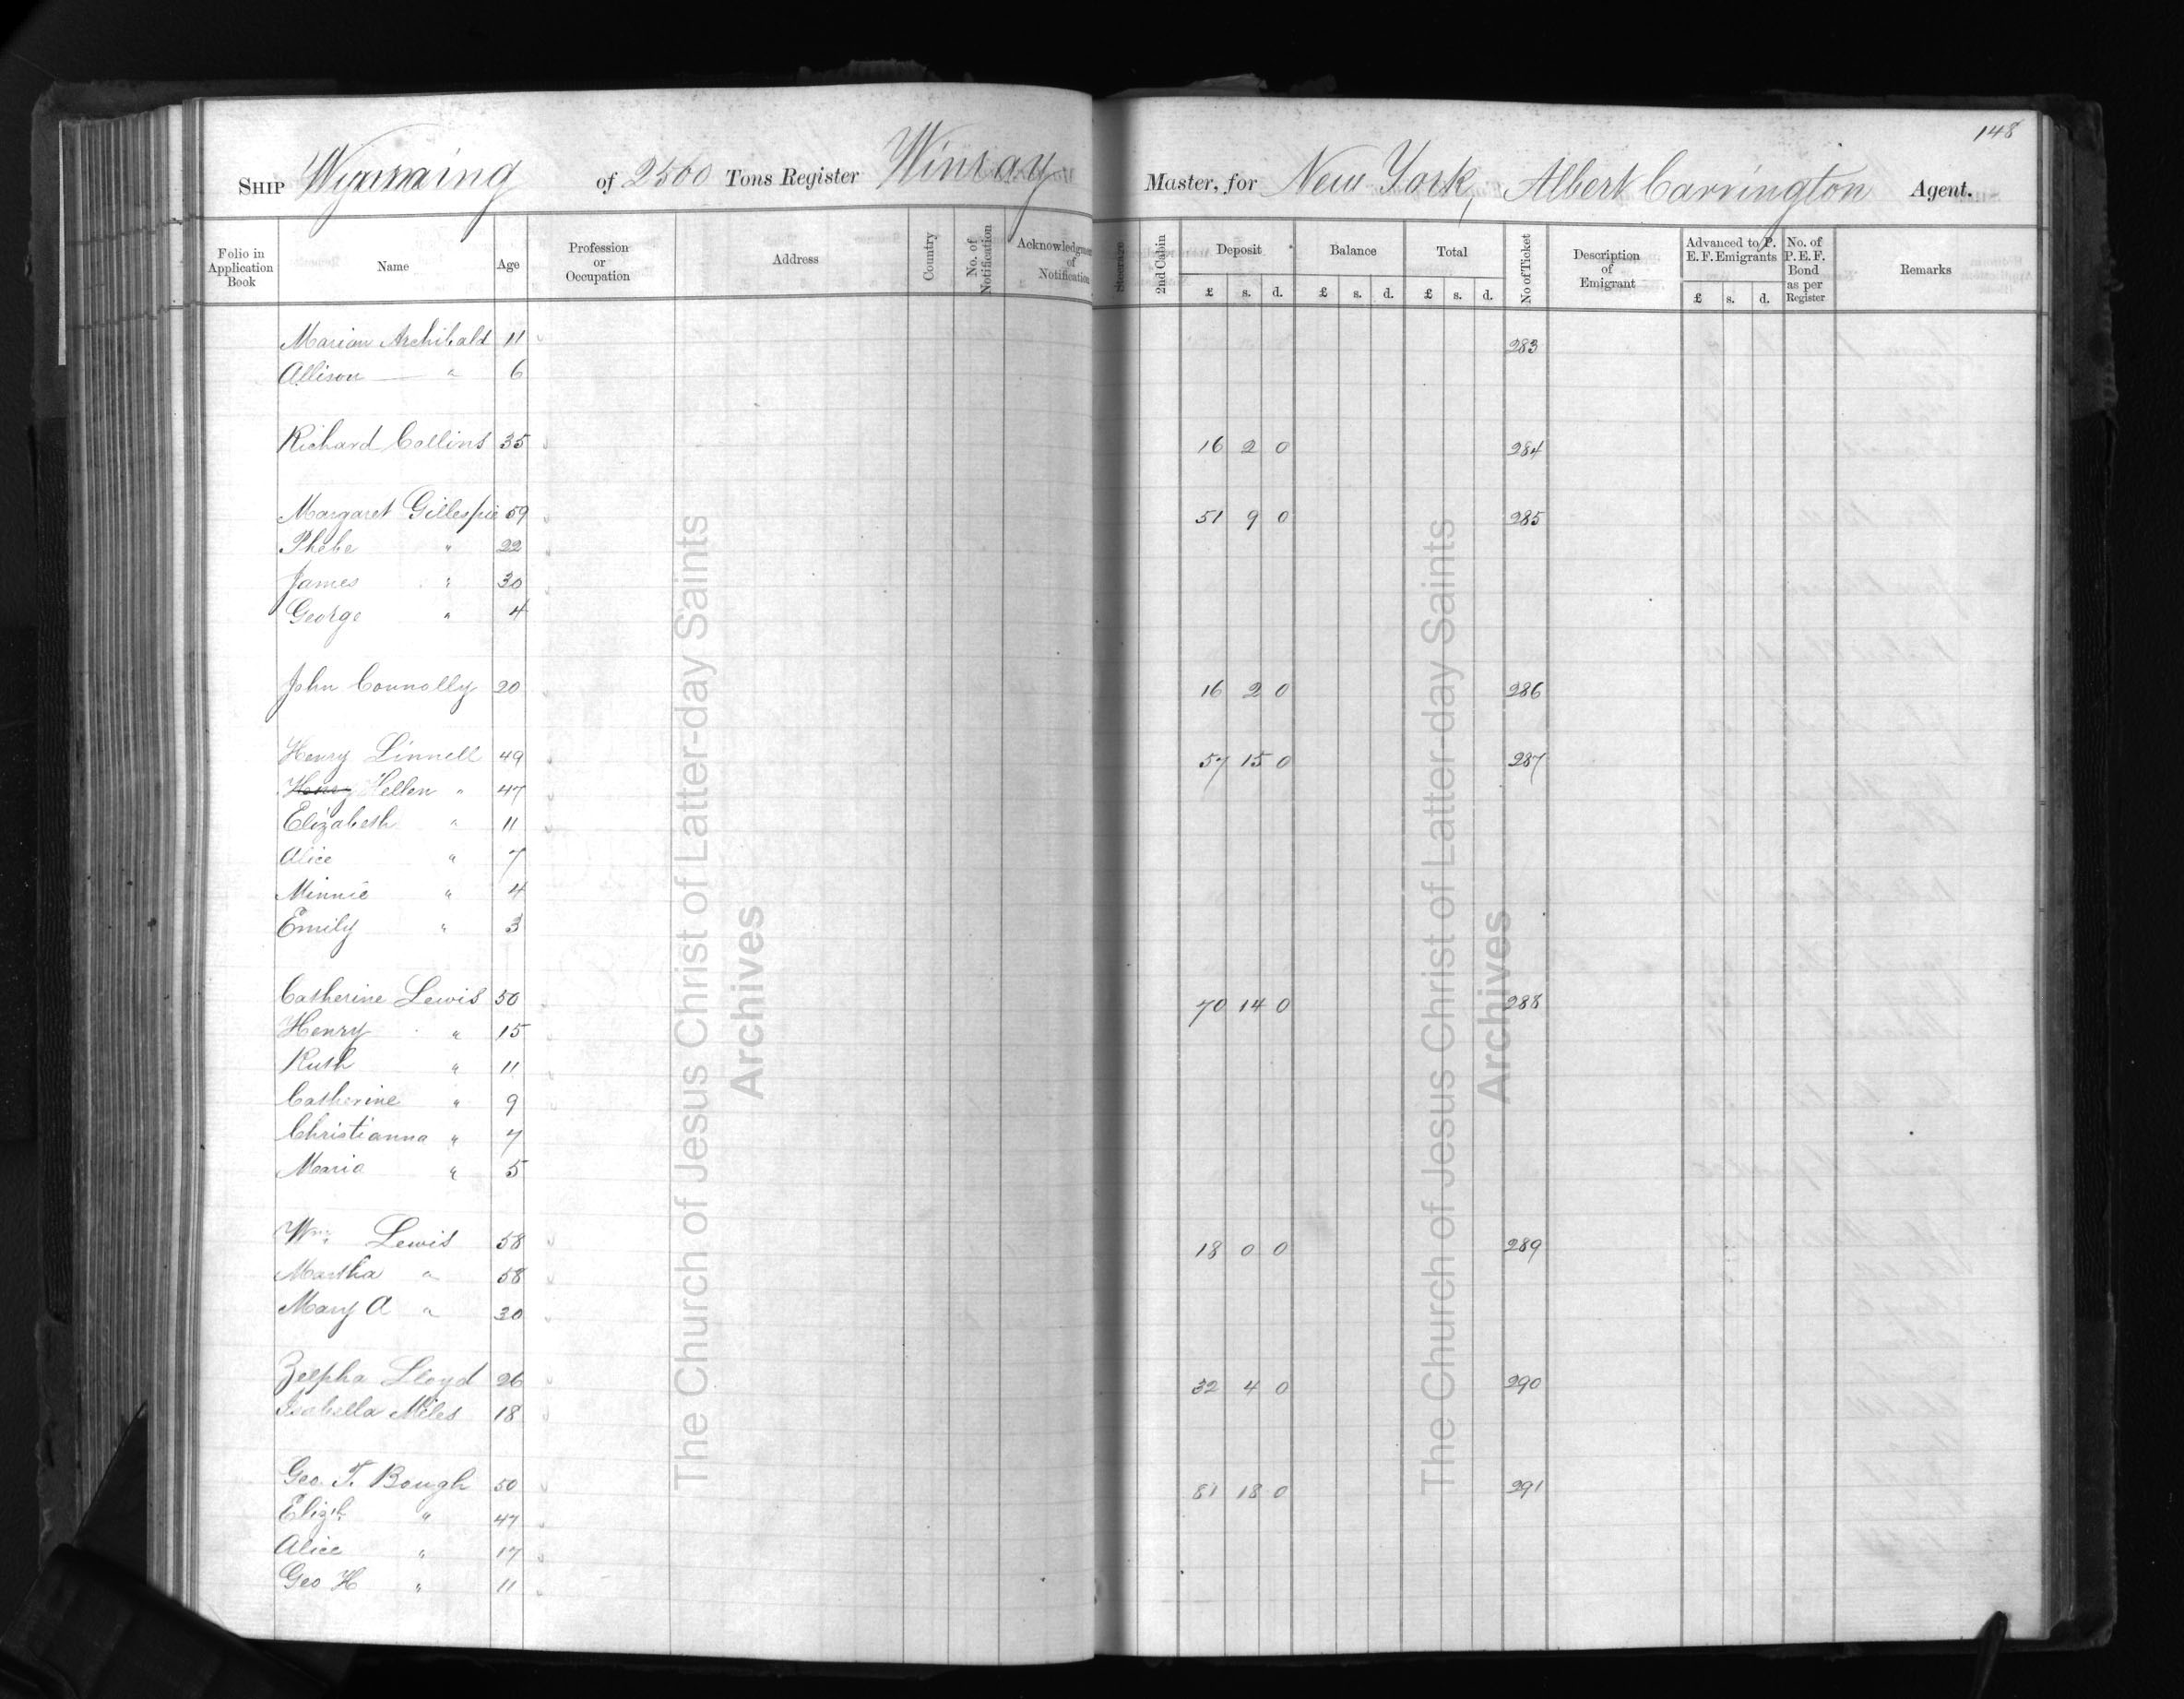 148
SHIP Wyoming of 2500 Tons Register Winray Master, for New York, Albert Carrington Agent.
Folio in Application Book Name Age Profession or Occupation Address Country No. of Notification Acknowledgment of Notification Steerage 2nd Cabin Deposit Balance Total No of Ticket Description of Emigrant Advanced to P. E. F. Emigrants No. of P. E. F. Bond as per Register Remarks
£ s. d. £ s. d. £ s. d. £ s. d.
Marion Archibald 11 283
Allison " 6
Richard Collins 35 16 2 0 284
Margaret Gillespie 59 51 9 0 285
Phebe " 22
James " 30
George " 4
John Connolly 20 16 2 0 286
Henry Linnell 49 57 15 0 287
Henry Hellen " 47
Elizabeth " 11
Alice " 7
Minnie " 4
Emily " 3
Catherine Lewis 50 70 14 0 288
Henry " 15
Ruth " 11
Catherine " 9
Christianna " 7
Maria " 5
Wm. Lewis 58 18 0 0 289
Martha " 58
Mary A " 20
Zelpha Lloyd 26 32 4 0 290
Isabella Miles 18
Geo. T. Bough 50 81 18 0 291
Elizth. " 47
Alice " 17
Geo H " 11
The Church of Jesus Christ of Latter-day Saints
Archives
The Church of Jesus Christ of Latter-day Saints
Archives